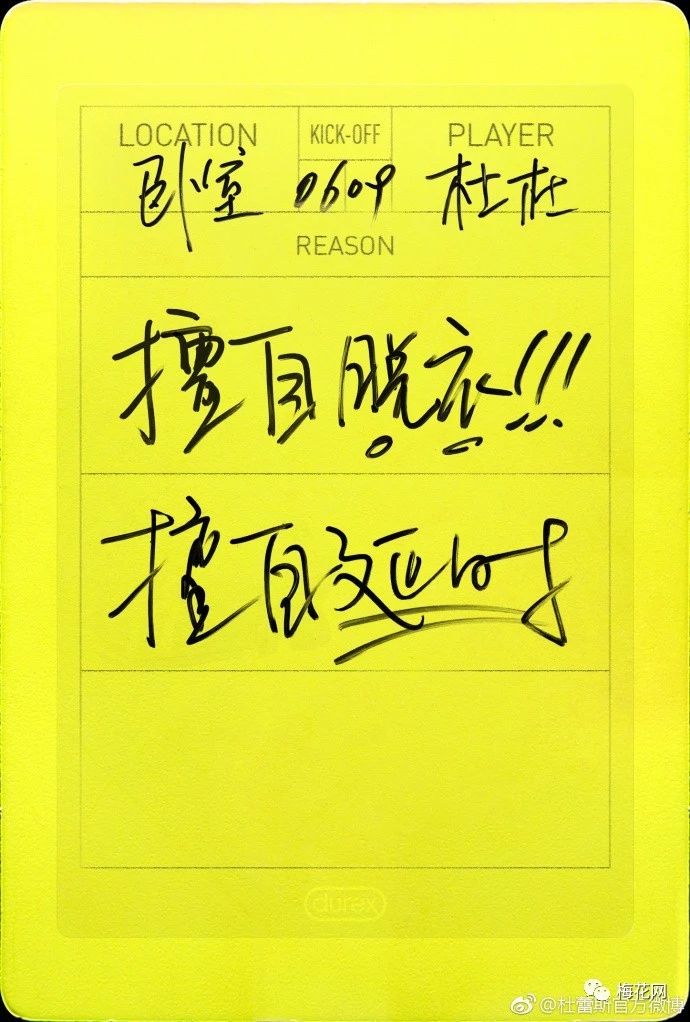 LOCATION KICK-OFF PLAYER
卧室 0609 杜杜
REASON
擅自脱衣!!!
擅自延时
durex
梅花网
@杜蕾斯官方微博